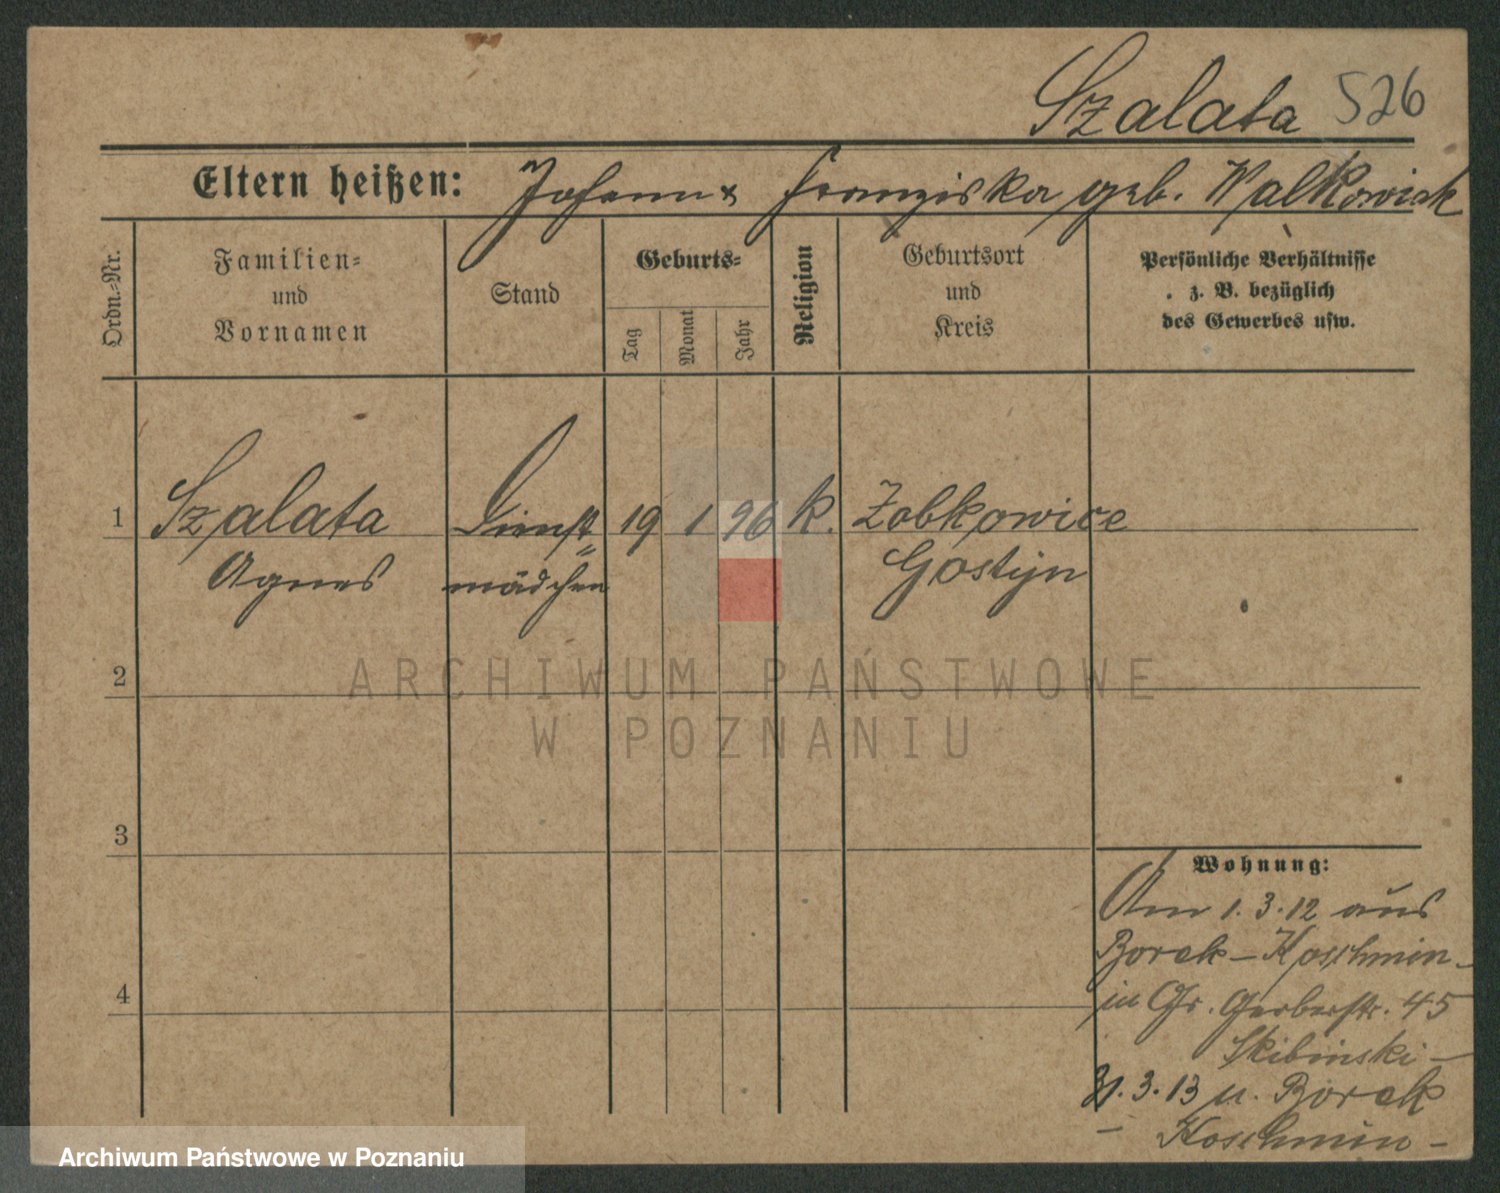 Szalata 526
Eltern heißen: Johann & Franziska geb. Walkowiak
Ordn.-Nr.
Familien-
und
Vornamen
Stand
Geburts-
Tag
Monat
Jahr
Religion
Geburtsort
und
Kreis
Persönliche Verhältnisse
z. B. bezüglich
des Gewerbes usw.
1 Szalata Dienst= 19 1 96 k. Zobkowice
Agnes mädchen Gostyn
2
3
4
Wohnung:
Am 1.3.12 aus
Borek – Koschmin –
in Gr. Gerberstr. 45
Skibinski –
31.3.13 n. Borek
– Koschmin –
ARCHIWUM PAŃSTWOWE
W POZNANIU
Archiwum Państwowe w Poznaniu